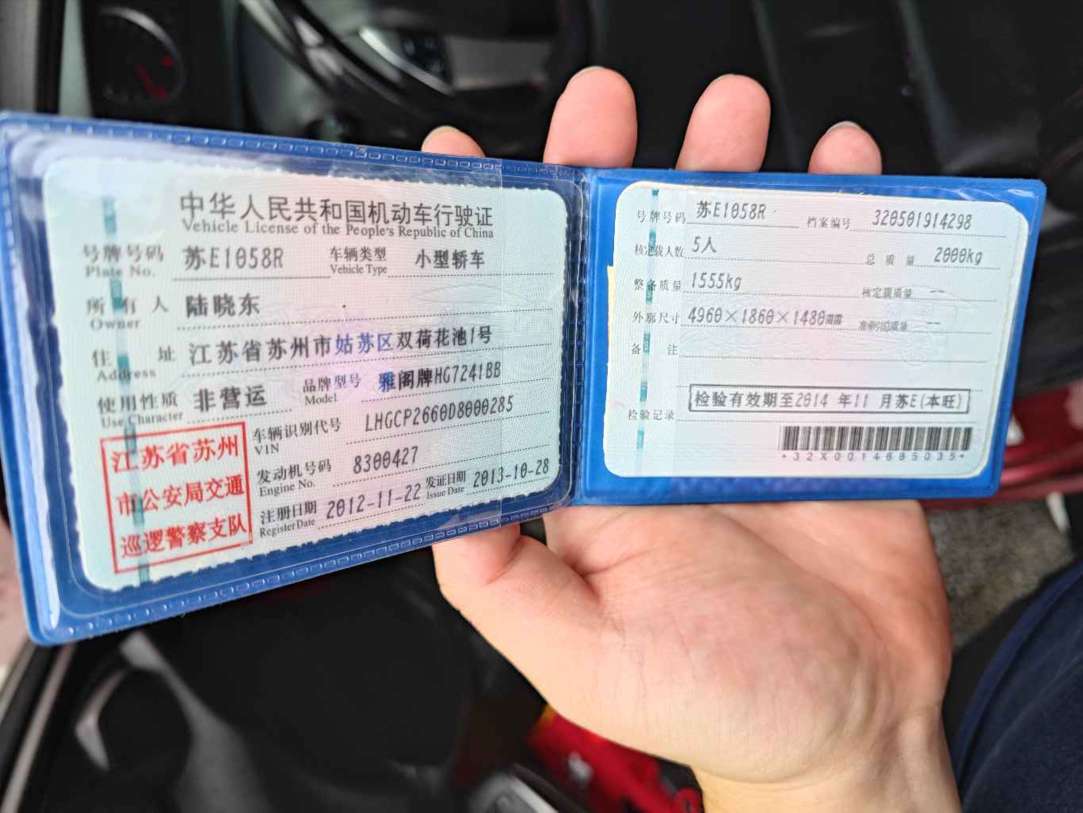 中华人民共和国机动车行驶证
Vehicle License of the People's Republic of China
号牌号码 苏E1058R 车辆类型 小型轿车
Plate No. Vehicle Type
所有人 陆晓东
Owner
住址 江苏省苏州市姑苏区双荷花池1号
Address
使用性质 非营运 品牌型号 雅阁牌HG7241BB
Use Character Model
江苏省苏州
市公安局交通
巡逻警察支队
车辆识别代号 LHGCP2660D8000285
VIN
发动机号码 8300427
Engine No.
注册日期 2012-11-22 发证日期 2013-10-28
Register Date Issue Date
号牌号码 苏E1058R 档案编号 320501914298
核定载人数 5人 总质量 2000kg
整备质量 1555kg 核定载质量 --
外廓尺寸 4960×1860×1480 --
备注
检验记录 检验有效期至2014 年11 月苏E(本旺)
*32X0014685035*